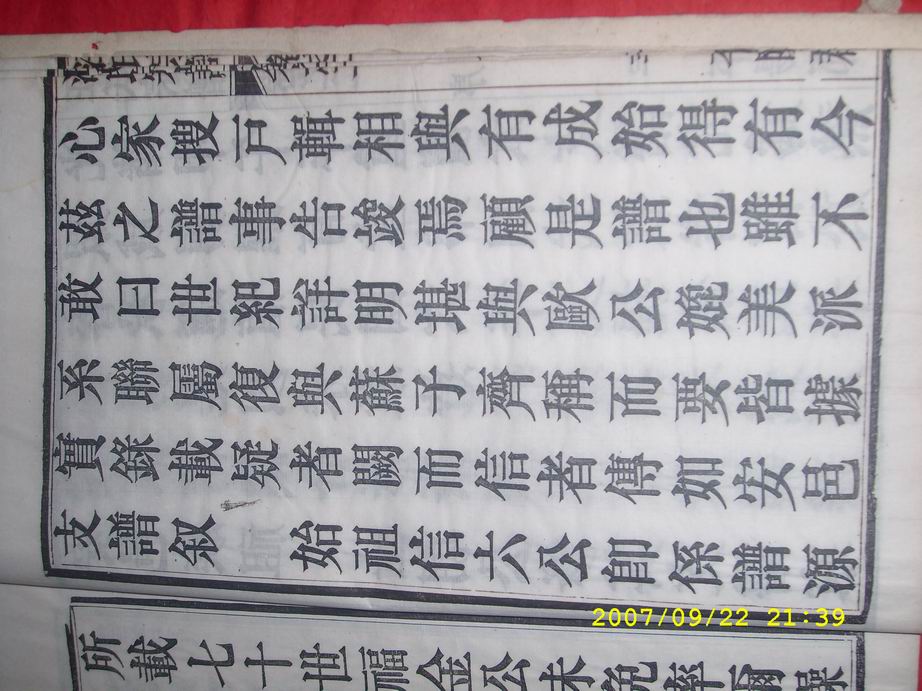 心家搜戸輯相與有成始得有今
茲之譜事告竣焉顧是譜也雖不
敢曰世紀詳明堪與歐公媲美派
系聯屬復與蘇子齊稱而要皆據
實錄載疑者闕而信者傳如安邑
支譜叙 始祖信六公卽係譜源
所載七十世福金公未免率爾操
2007/09/22 21:39